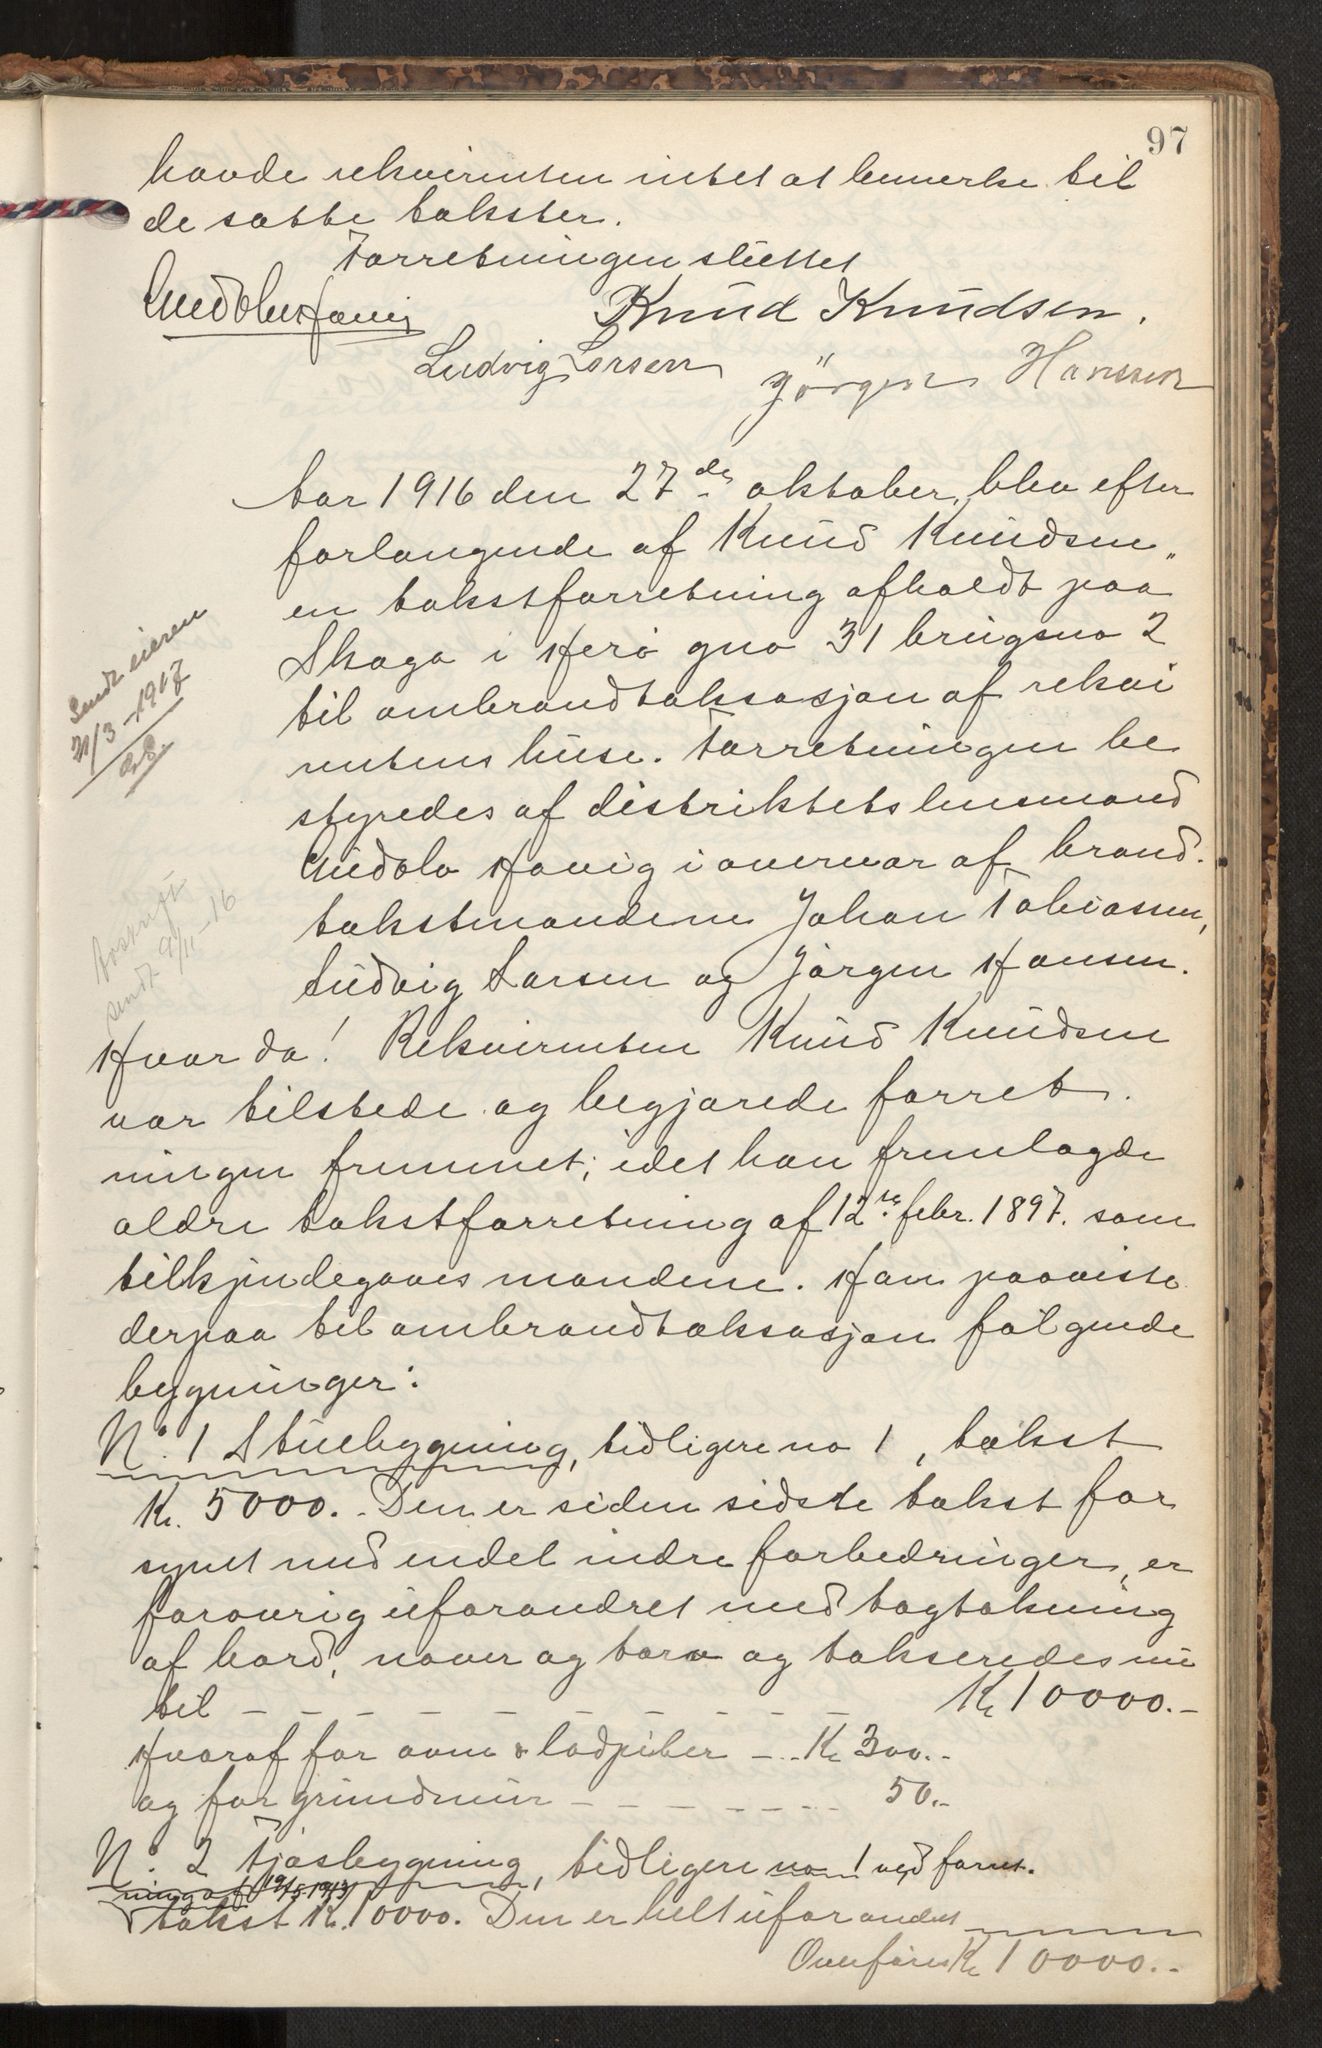 97
havde rekvirenten intet at bemerke til
de satte takster.
Forretningen sluttet
Gudolv Havig
Knud Knudsen.
Ludvig Larsen Jörgen Hanssen
Aar 1916 den 27de oktober, blev efter
forlangende af Knud Knudsen,
en takstforretning afholdt paa
Skaga i Herø gno 31 brugsno 2
til ombrandtaksasjon af rekvi
rentens huse. Forretningen be
styredes af distriktets lensmand
Gudolv Havig i overvær af brand-
takstmændene Johan Tobiassen,
Ludvig Larsen og Jørgen Hansen.
Sendt eieren
21/3-1917
Avskrift
sendt 9/11-16
Hvor da! Rekvirenten Knud Knudsen
var tilstede og begjærede forret-
ningen fremmet, idet han fremlagde
ældre takstforretning af 12te febr. 1897. som
tilkjendegaves mændene. Han paaviste
derpaa til ombrandtaksasjon følgende
bygninger:
No. 1 Stuebygning, tidligere no 1, takst
Kr. 5000.- Den er siden sidste takst for
synet med endel indre forbedringer, er
forøvrig uforandret med tagtækning
af bord, næver og torv og takseredes nu
til – – – – – – – – – – Kr 10000.-
Hvoraf for ovne & ladpiber – .. Kr 300.-
og for grundmur – – – – – – – 50.-
No. 2 Fjøsbygning, tidligere no 1 ved forret-
ning af 19/5 1913
takst Kr. 10000. Den er helt uforandret
Overføres Kr 10000.-